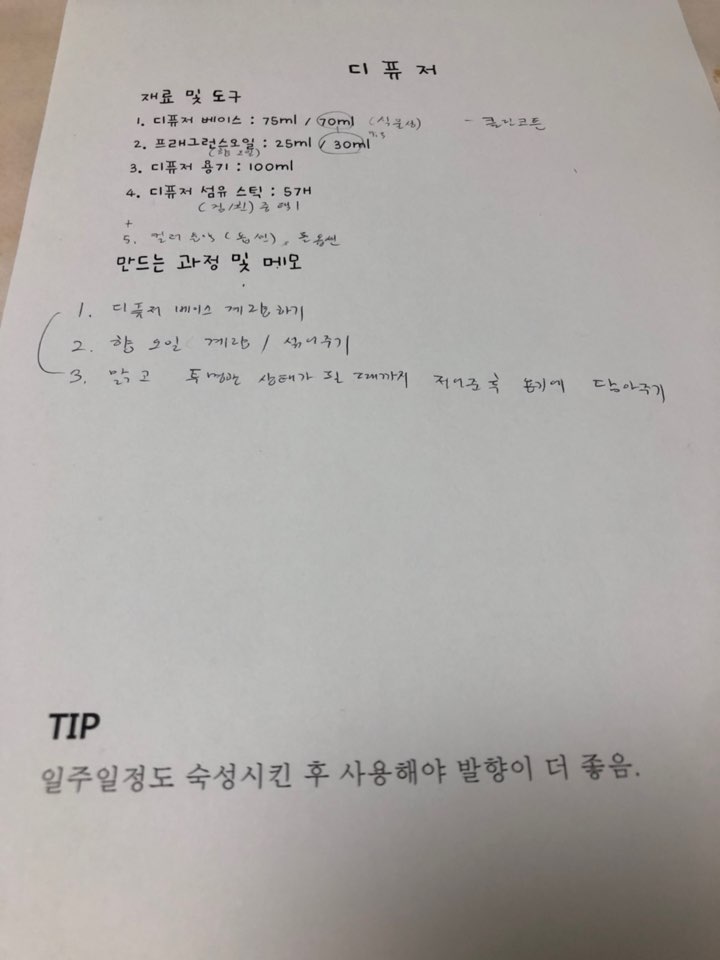 디퓨저
재료 및 도구
1. 디퓨저 베이스 : 75ml / 70ml (식물성) - 클린코튼
2. 프래그런스오일 : 25ml / 30ml 7:3
(향 오일)
3. 디퓨저 용기 : 100ml
4. 디퓨저 섬유 스틱 : 5개
(검/흰) 중 택1
+
5. 컬러 (옵션),
만드는 과정 및 메모
1. 디퓨저 베이스 계량하기
2. 향 오일 계량 / 섞어주기
3. 맑고 투명한 상태가 될 때까지 저어준 후 용기에 담아주기
TIP
일주일정도 숙성시킨 후 사용해야 발향이 더 좋음.